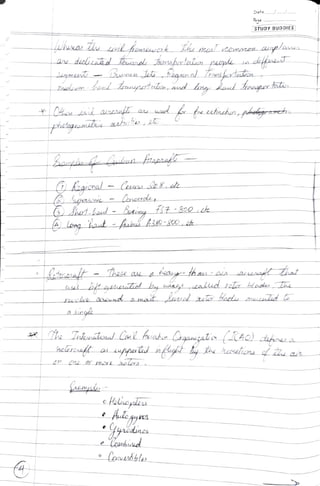 Date
Page
STUDY BUDDIES
Whereas the civil framework the most common airplanes
are dedicated towards transportation people in different
segment - Business Jets, Regional Transportation,
medium haul transportation, and long haul transportation.
* Other civil aircraft are used for fire extinction,
photogrammetric activities, etc
Examples of Civilian Aircraft -
① Regional - Cessna 208 etc
② Supersonic - Concorde,
③ Short haul - Boeing 737-300, etc
④ Long haul - Airbus A380-800, etc
Rotorcraft - These are a heavy than air aircraft that
use lift generated by wings, called rotor blades, that
revolve around a mast. Several rotor blades mounted to
a single
The International Civil Aviation Organization (ICAO) defines a
rotorcraft as supported in flight by the reactions of the air
on one or more rotors.
Examples:
• Helicopters
• Autogyros
• Gyrodines
• Combined
• Convertibles